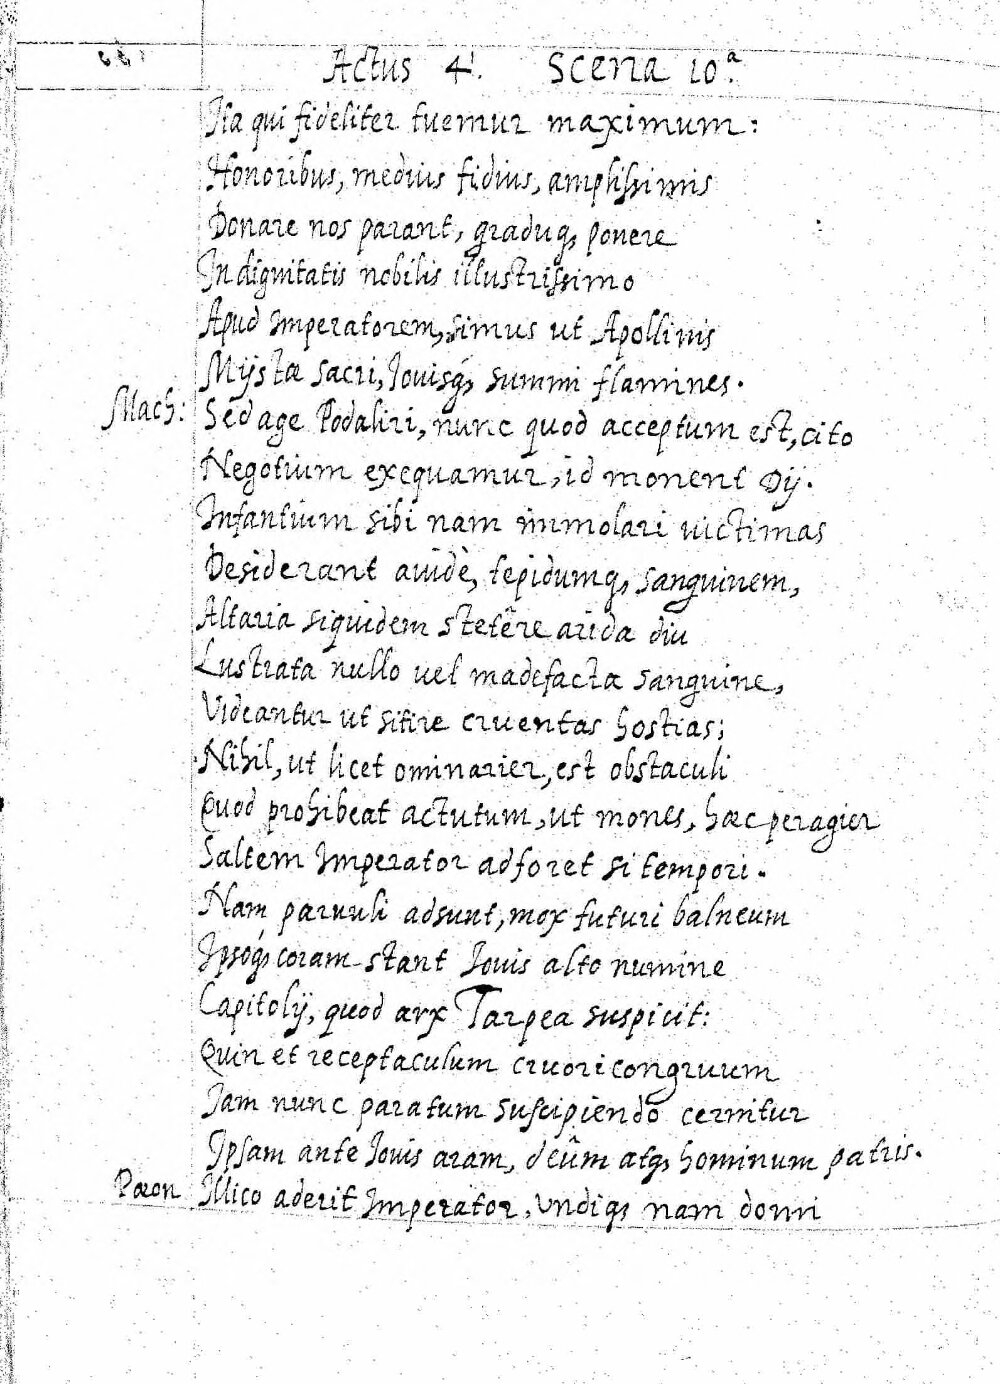 Actus 4.^s Scena 10.^a
Ita qui fideliter tuemur maximum:
Honoribus, medius fidius, amplissimis
Donare nos parant, graduq, ponere
In dignitatis nobilis illustrissimo
Apud Imperatorem, simus ut Apollinis
Mystæ sacri, Iouisq, summi flamines.
Mach: Sed age Podaliri, nunc quod acceptum est, cito
Negotium exequamur, id monent Dij.
Infantium sibi nam immolari uictimas
Desiderant auidè, tepidumq, sanguinem,
Altaria siquidem stetêre arida diu
Lustrata nullo uel madefacta sanguine,
Videantur ut sitire cruentas hostias;
Nihil, ut licet ominarier, est obstaculi
Quod prohibeat actutum, ut mones, hæc peragier
Saltem Imperator adforet si tempori.
Nam paruuli adsunt, mox futuri balneum
Ipsoq, coram stant Iouis alto numine
Capitolij, quod arx Tarpea suspicit:
Quin et receptaculum cruori congruum
Iam nunc paratum suscipiendo cernitur
Ipsam ante Iouis aram, deûm atq, hominum patris.
Pæon Illico aderit Imperator, undiq, nam domi